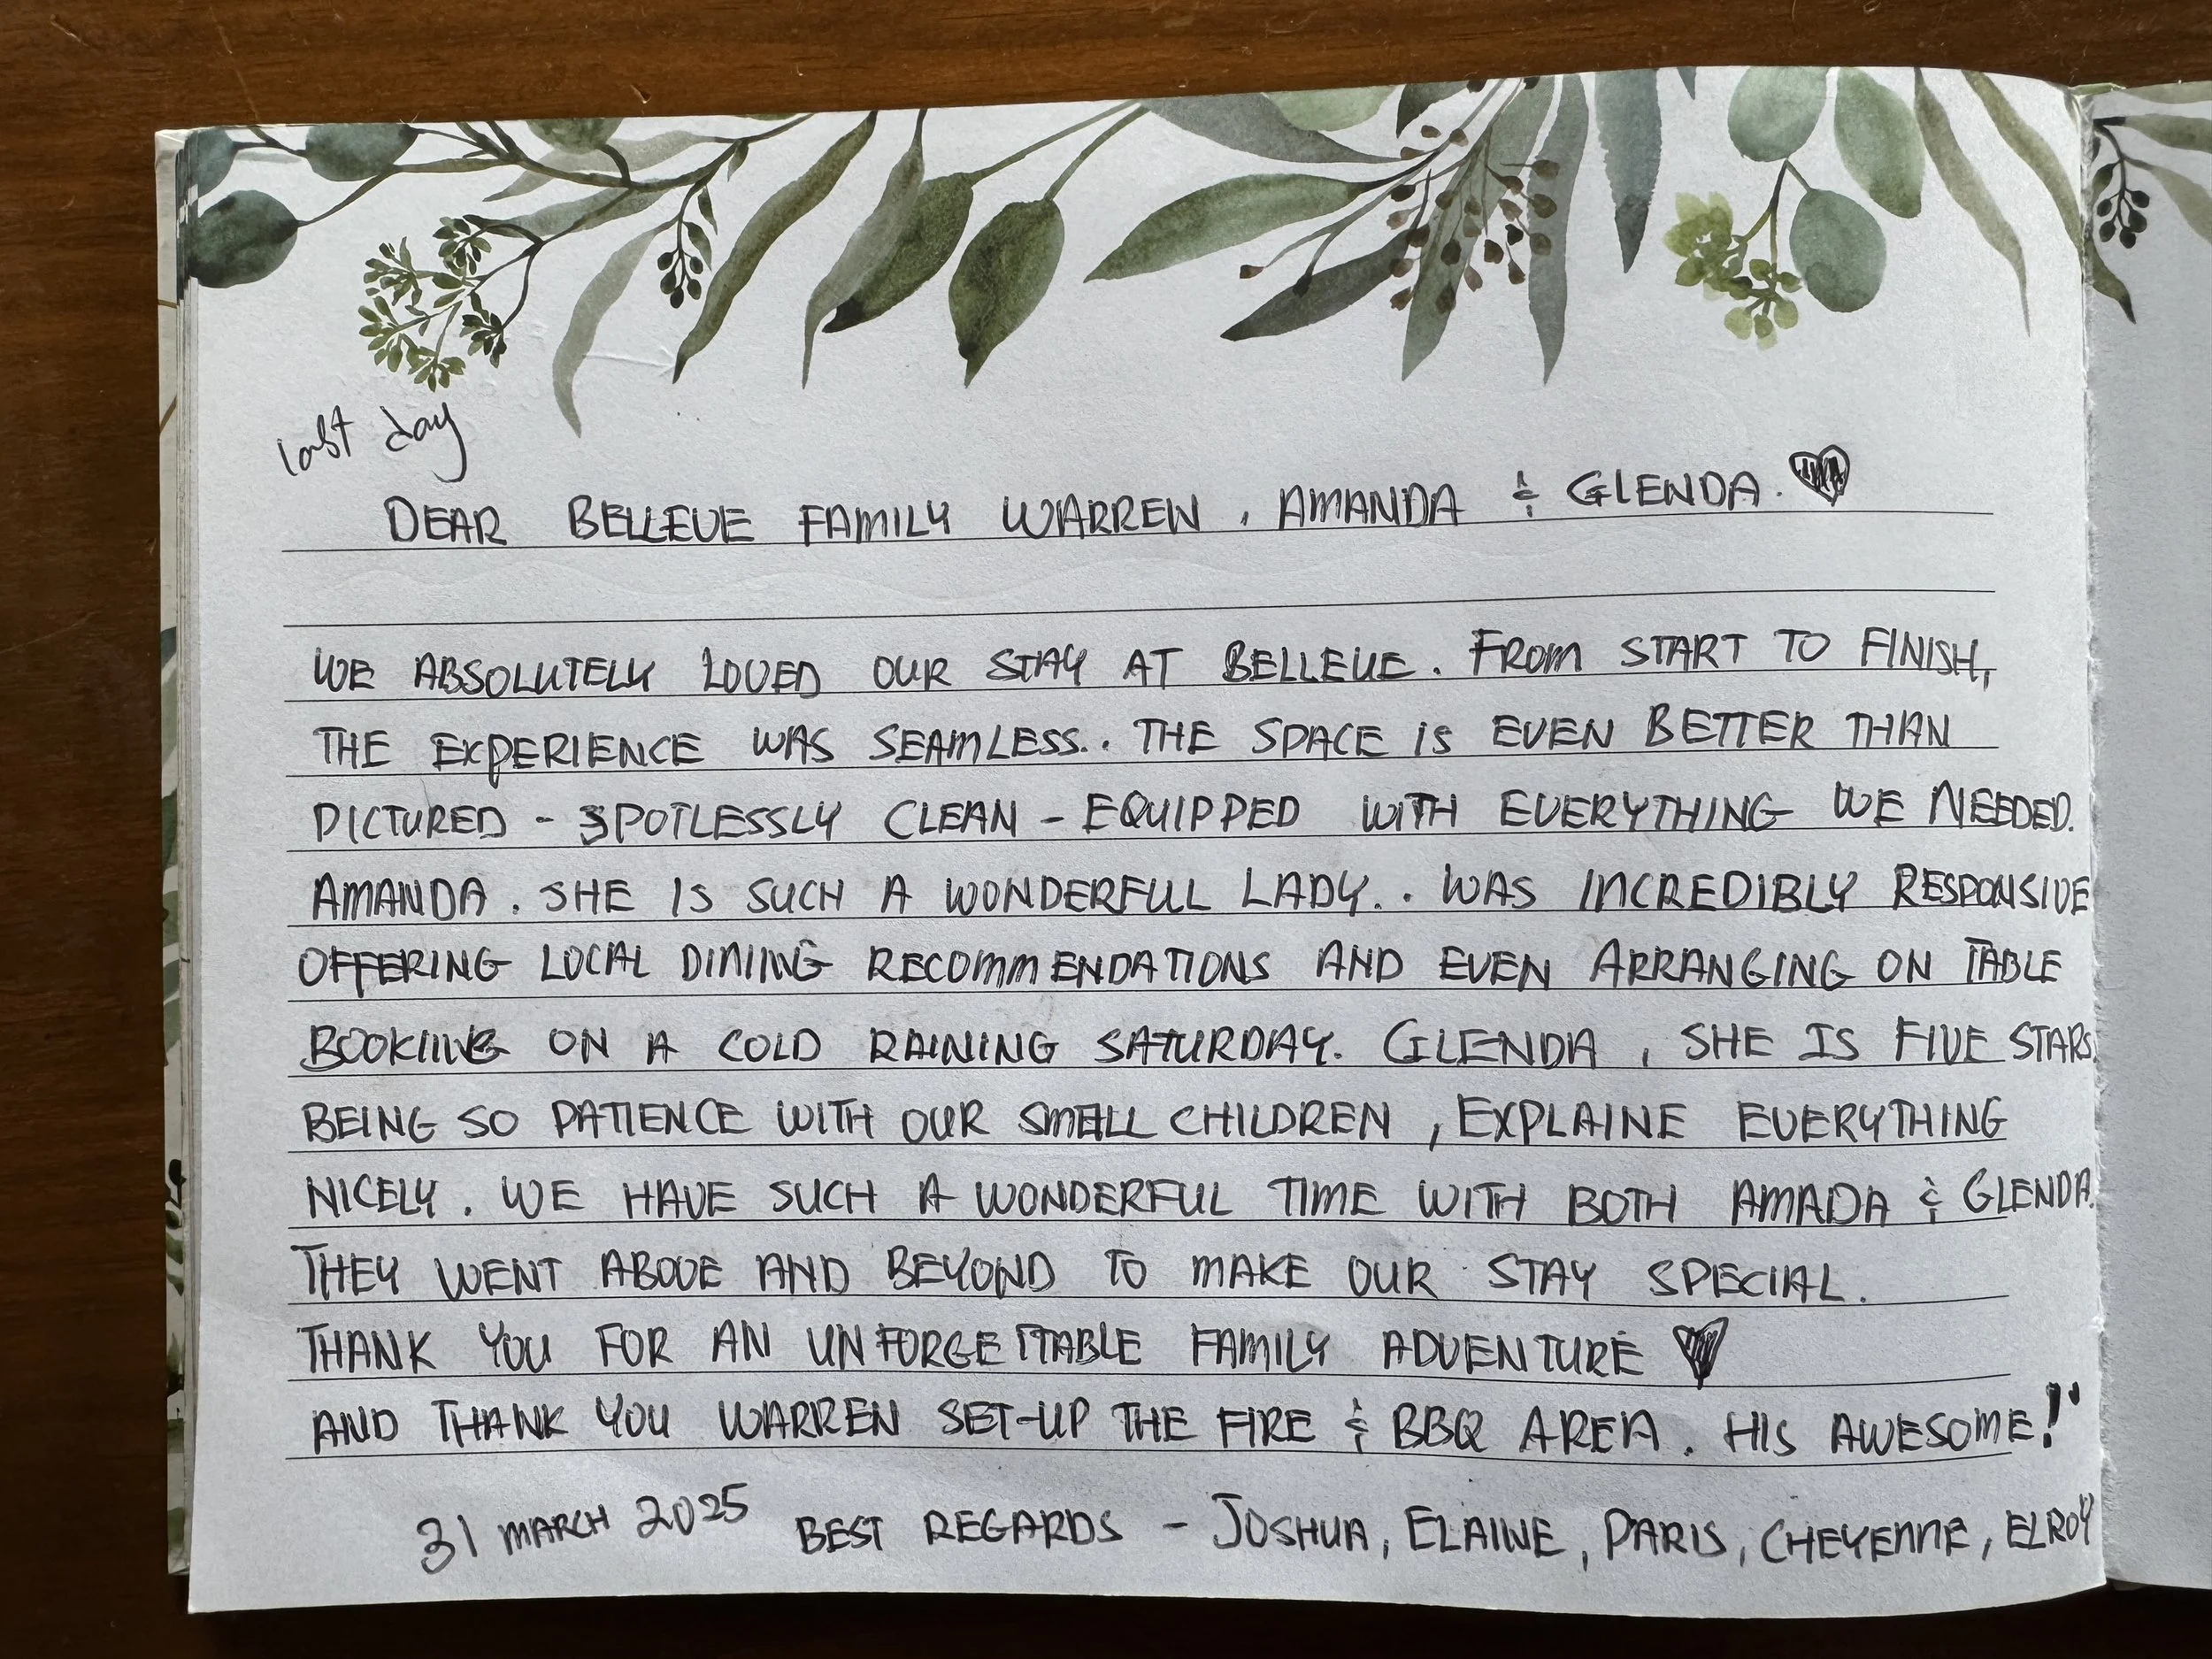 last day
DEAR BELLEVE FAMILY WARREN, AMANDA & GLENDA. ♥
WE ABSOLUTELY LOVED OUR STAY AT BELLEVE. FROM START TO FINISH,
THE EXPERIENCE WAS SEAMLESS.. THE SPACE IS EVEN BETTER THAN
PICTURED - SPOTLESSLY CLEAN - EQUIPPED WITH EVERYTHING WE NEEDED.
AMANDA. SHE IS SUCH A WONDERFUL LADY.. WAS INCREDIBLY RESPONSIVE
OFFERING LOCAL DINING RECOMMENDATIONS AND EVEN ARRANGING ON TABLE
BOOKING ON A COLD RAINING SATURDAY. GLENDA, SHE IS FIVE STARS.
BEING SO PATIENCE WITH OUR SMALL CHILDREN, EXPLAINE EVERYTHING
NICELY. WE HAVE SUCH A WONDERFUL TIME WITH BOTH AMADA & GLENDA.
THEY WENT ABOVE AND BEYOND TO MAKE OUR STAY SPECIAL.
THANK YOU FOR AN UNFORGETTABLE FAMILY ADVENTURE ♥
AND THANK YOU WARREN SET-UP THE FIRE & BBQ AREA. HIS AWESOME!'
31 MARCH 2025 BEST REGARDS - JOSHUA, ELAINE, PARIS, CHEYENNE, ELROY